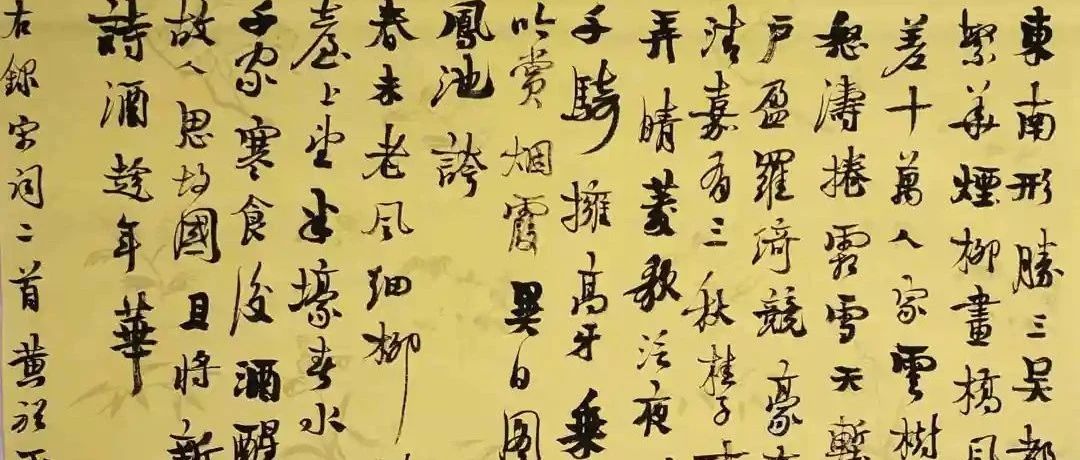 東南形勝三吳都
繁華煙柳畫橋風
差十萬人家雲樹
怒濤捲霜雪天塹
戶盈羅綺競豪
清嘉有三秋桂子
弄晴菱歌泛夜
千騎擁高牙乘
吟賞烟霞異日圖
鳳池誇
春未老風細柳
臺上望半壕春水
千家寒食後酒醒
故人思故國且將新
詩酒趁年華
右録宋詞二首黄